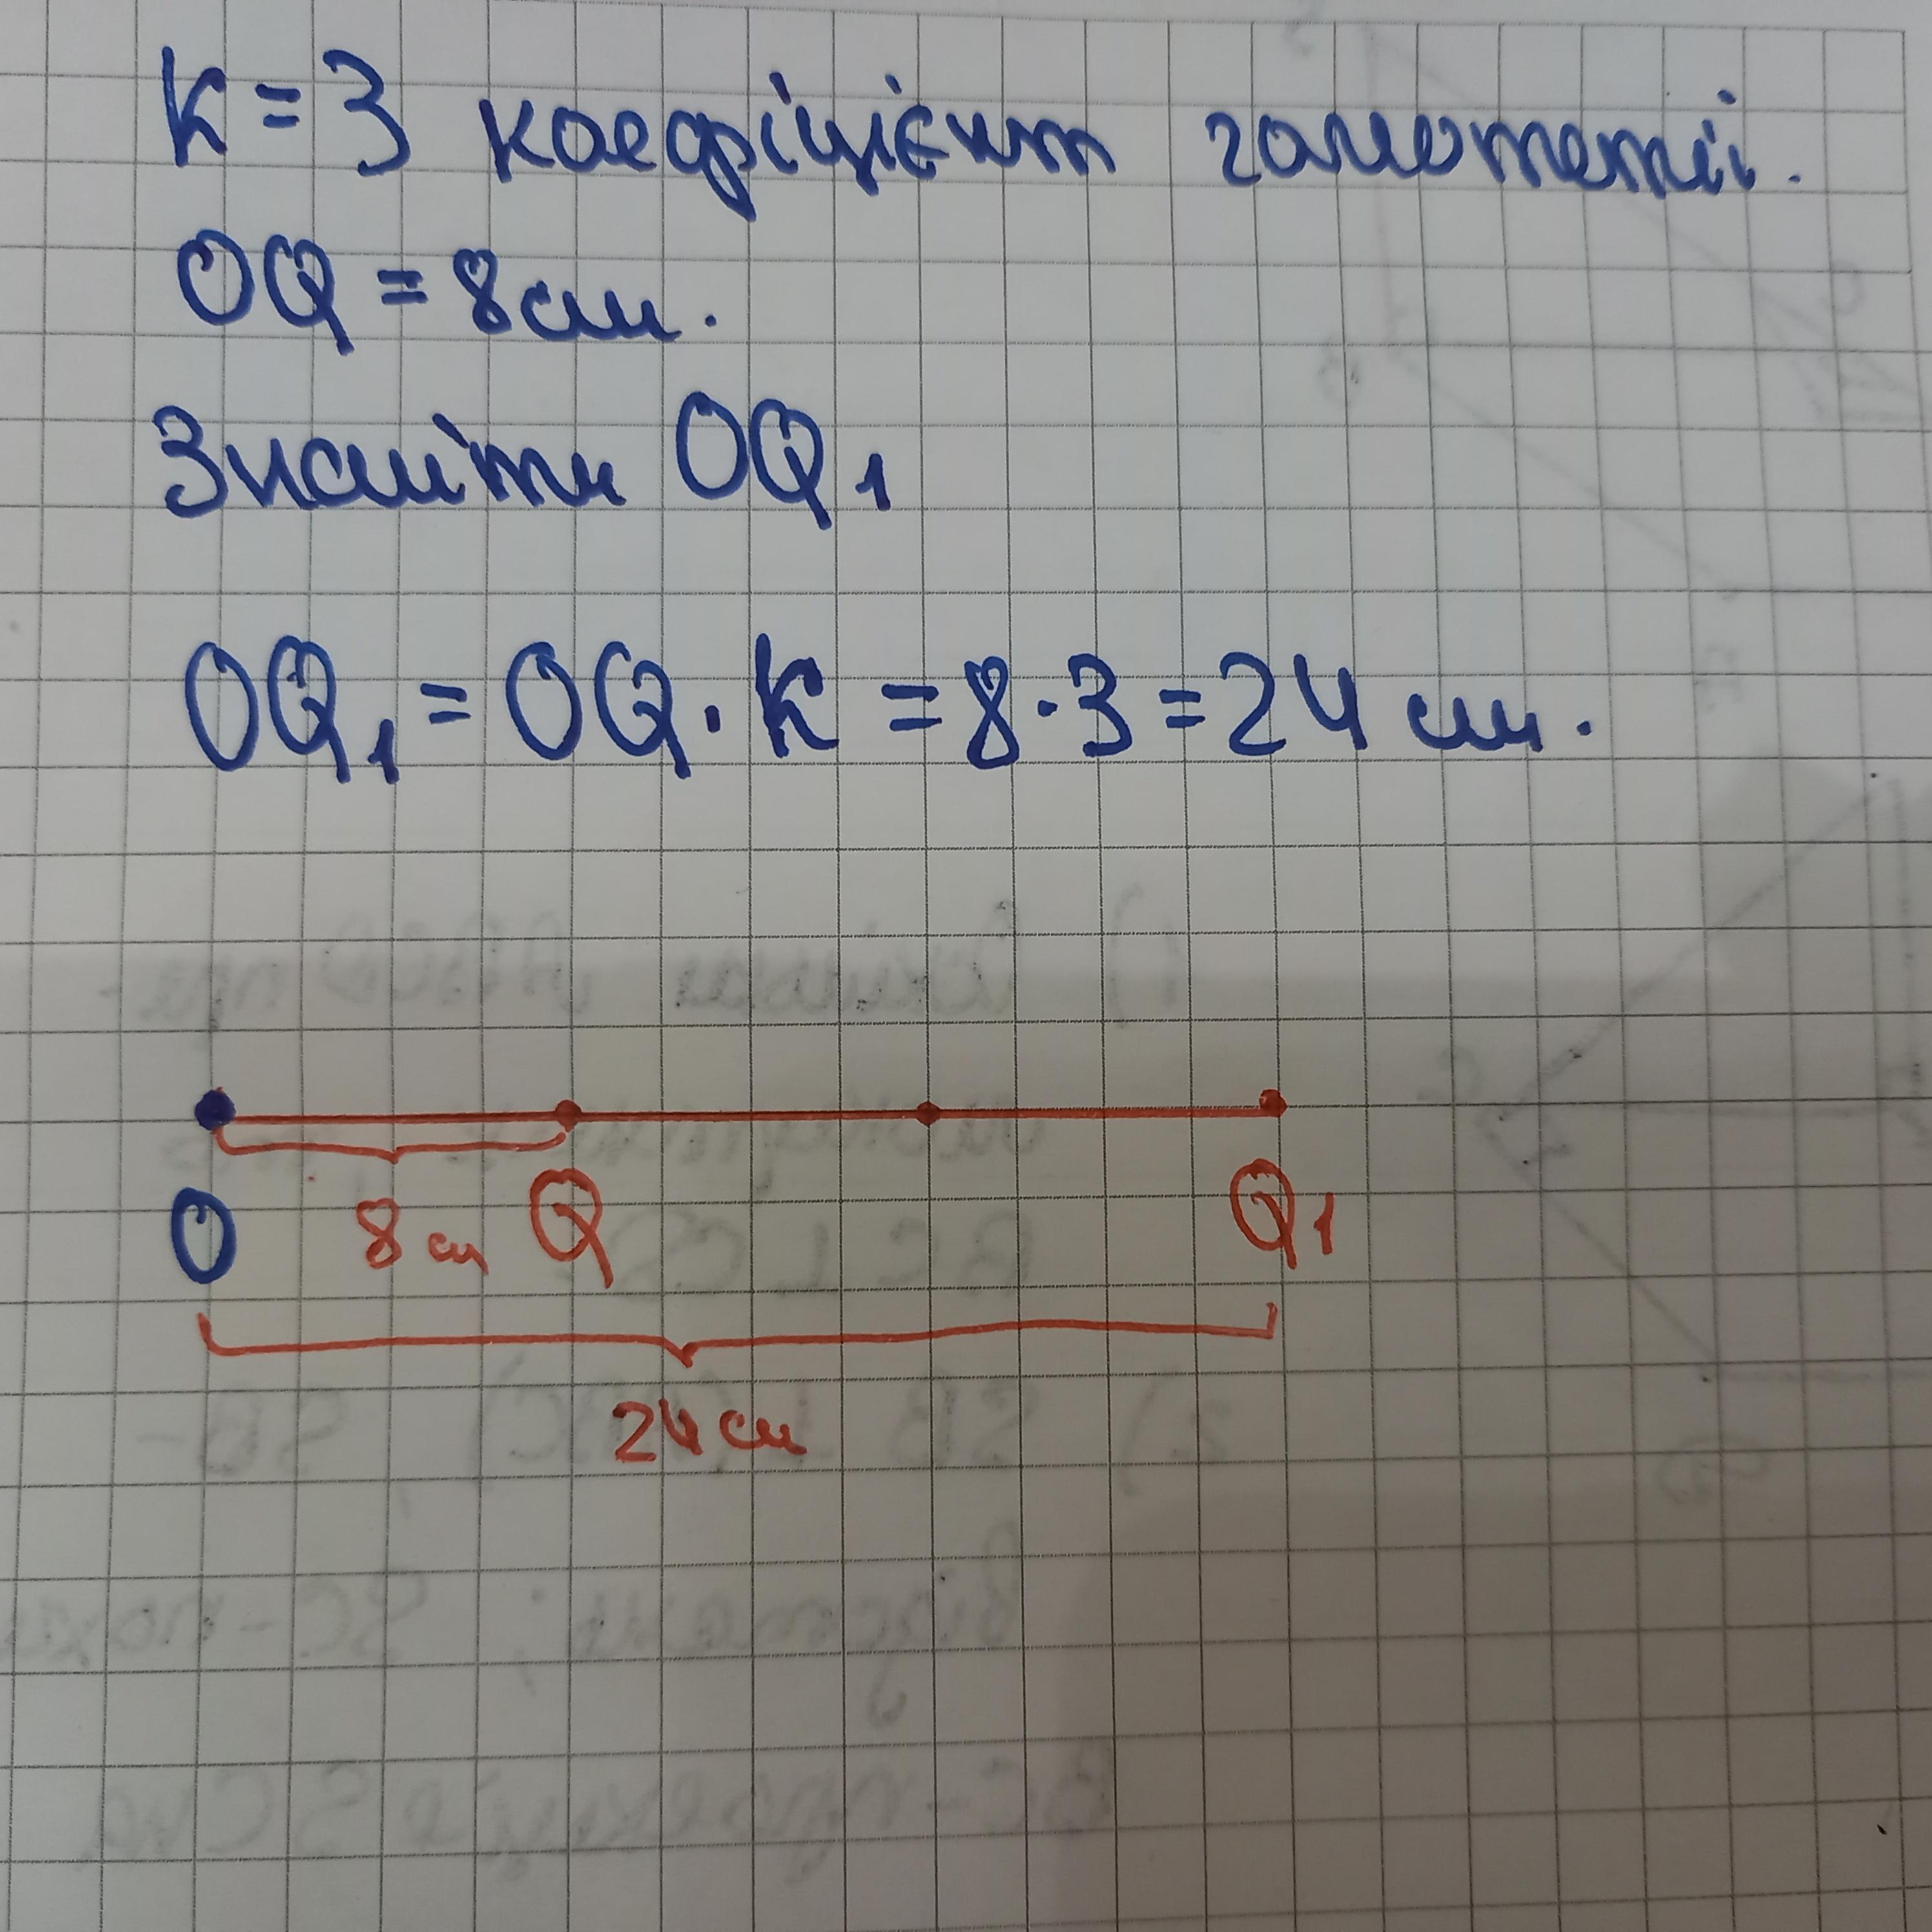 k = 3 коефіцієнт гомотетії.
OQ = 8 см.
Знайти OQ₁
OQ₁ = OQ · k = 8 · 3 = 24 см.
O 8 см Q Q₁
24 см